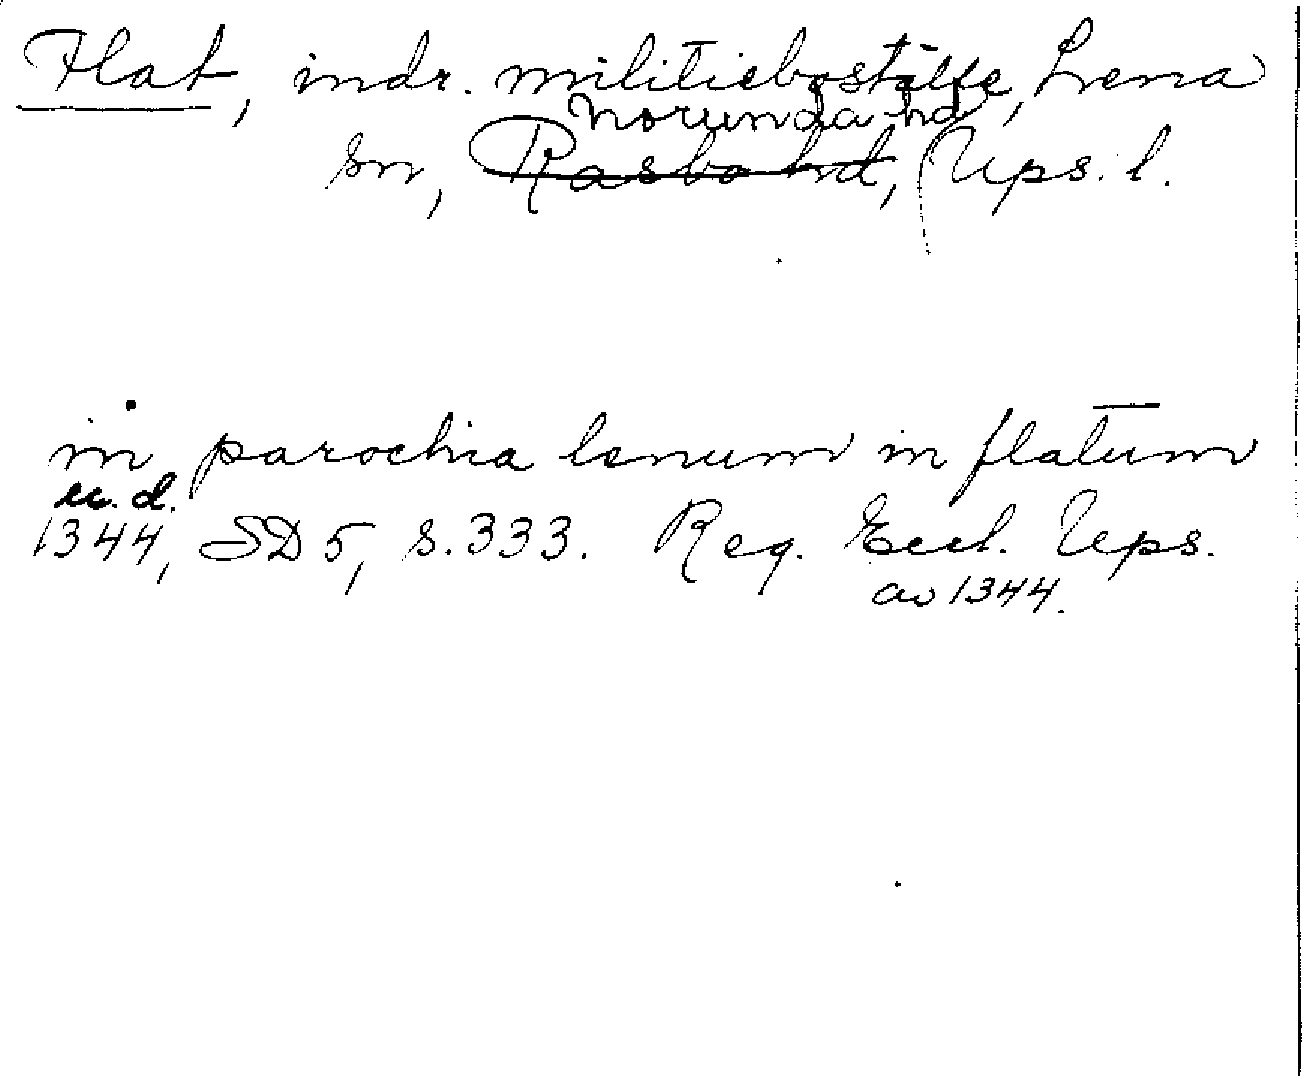 Flat, indr. militieboställe, Lena
Norunda hd
sn, Rasbo hd, Ups. l.
in parochia lenum in flatum
u. d.
1344, SD 5, s. 333. Reg. Eccl. Ups.
av 1344.